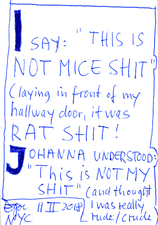 I
SAY: "THIS IS
NOT MICE SHIT"
(laying in front of my
hallway door, it was
RAT SHIT!
JOHANNA UNDERSTOOD:
"This is NOT MY
SHIT" (and thought
11 II 2018 I was really
NYC rude/crude)